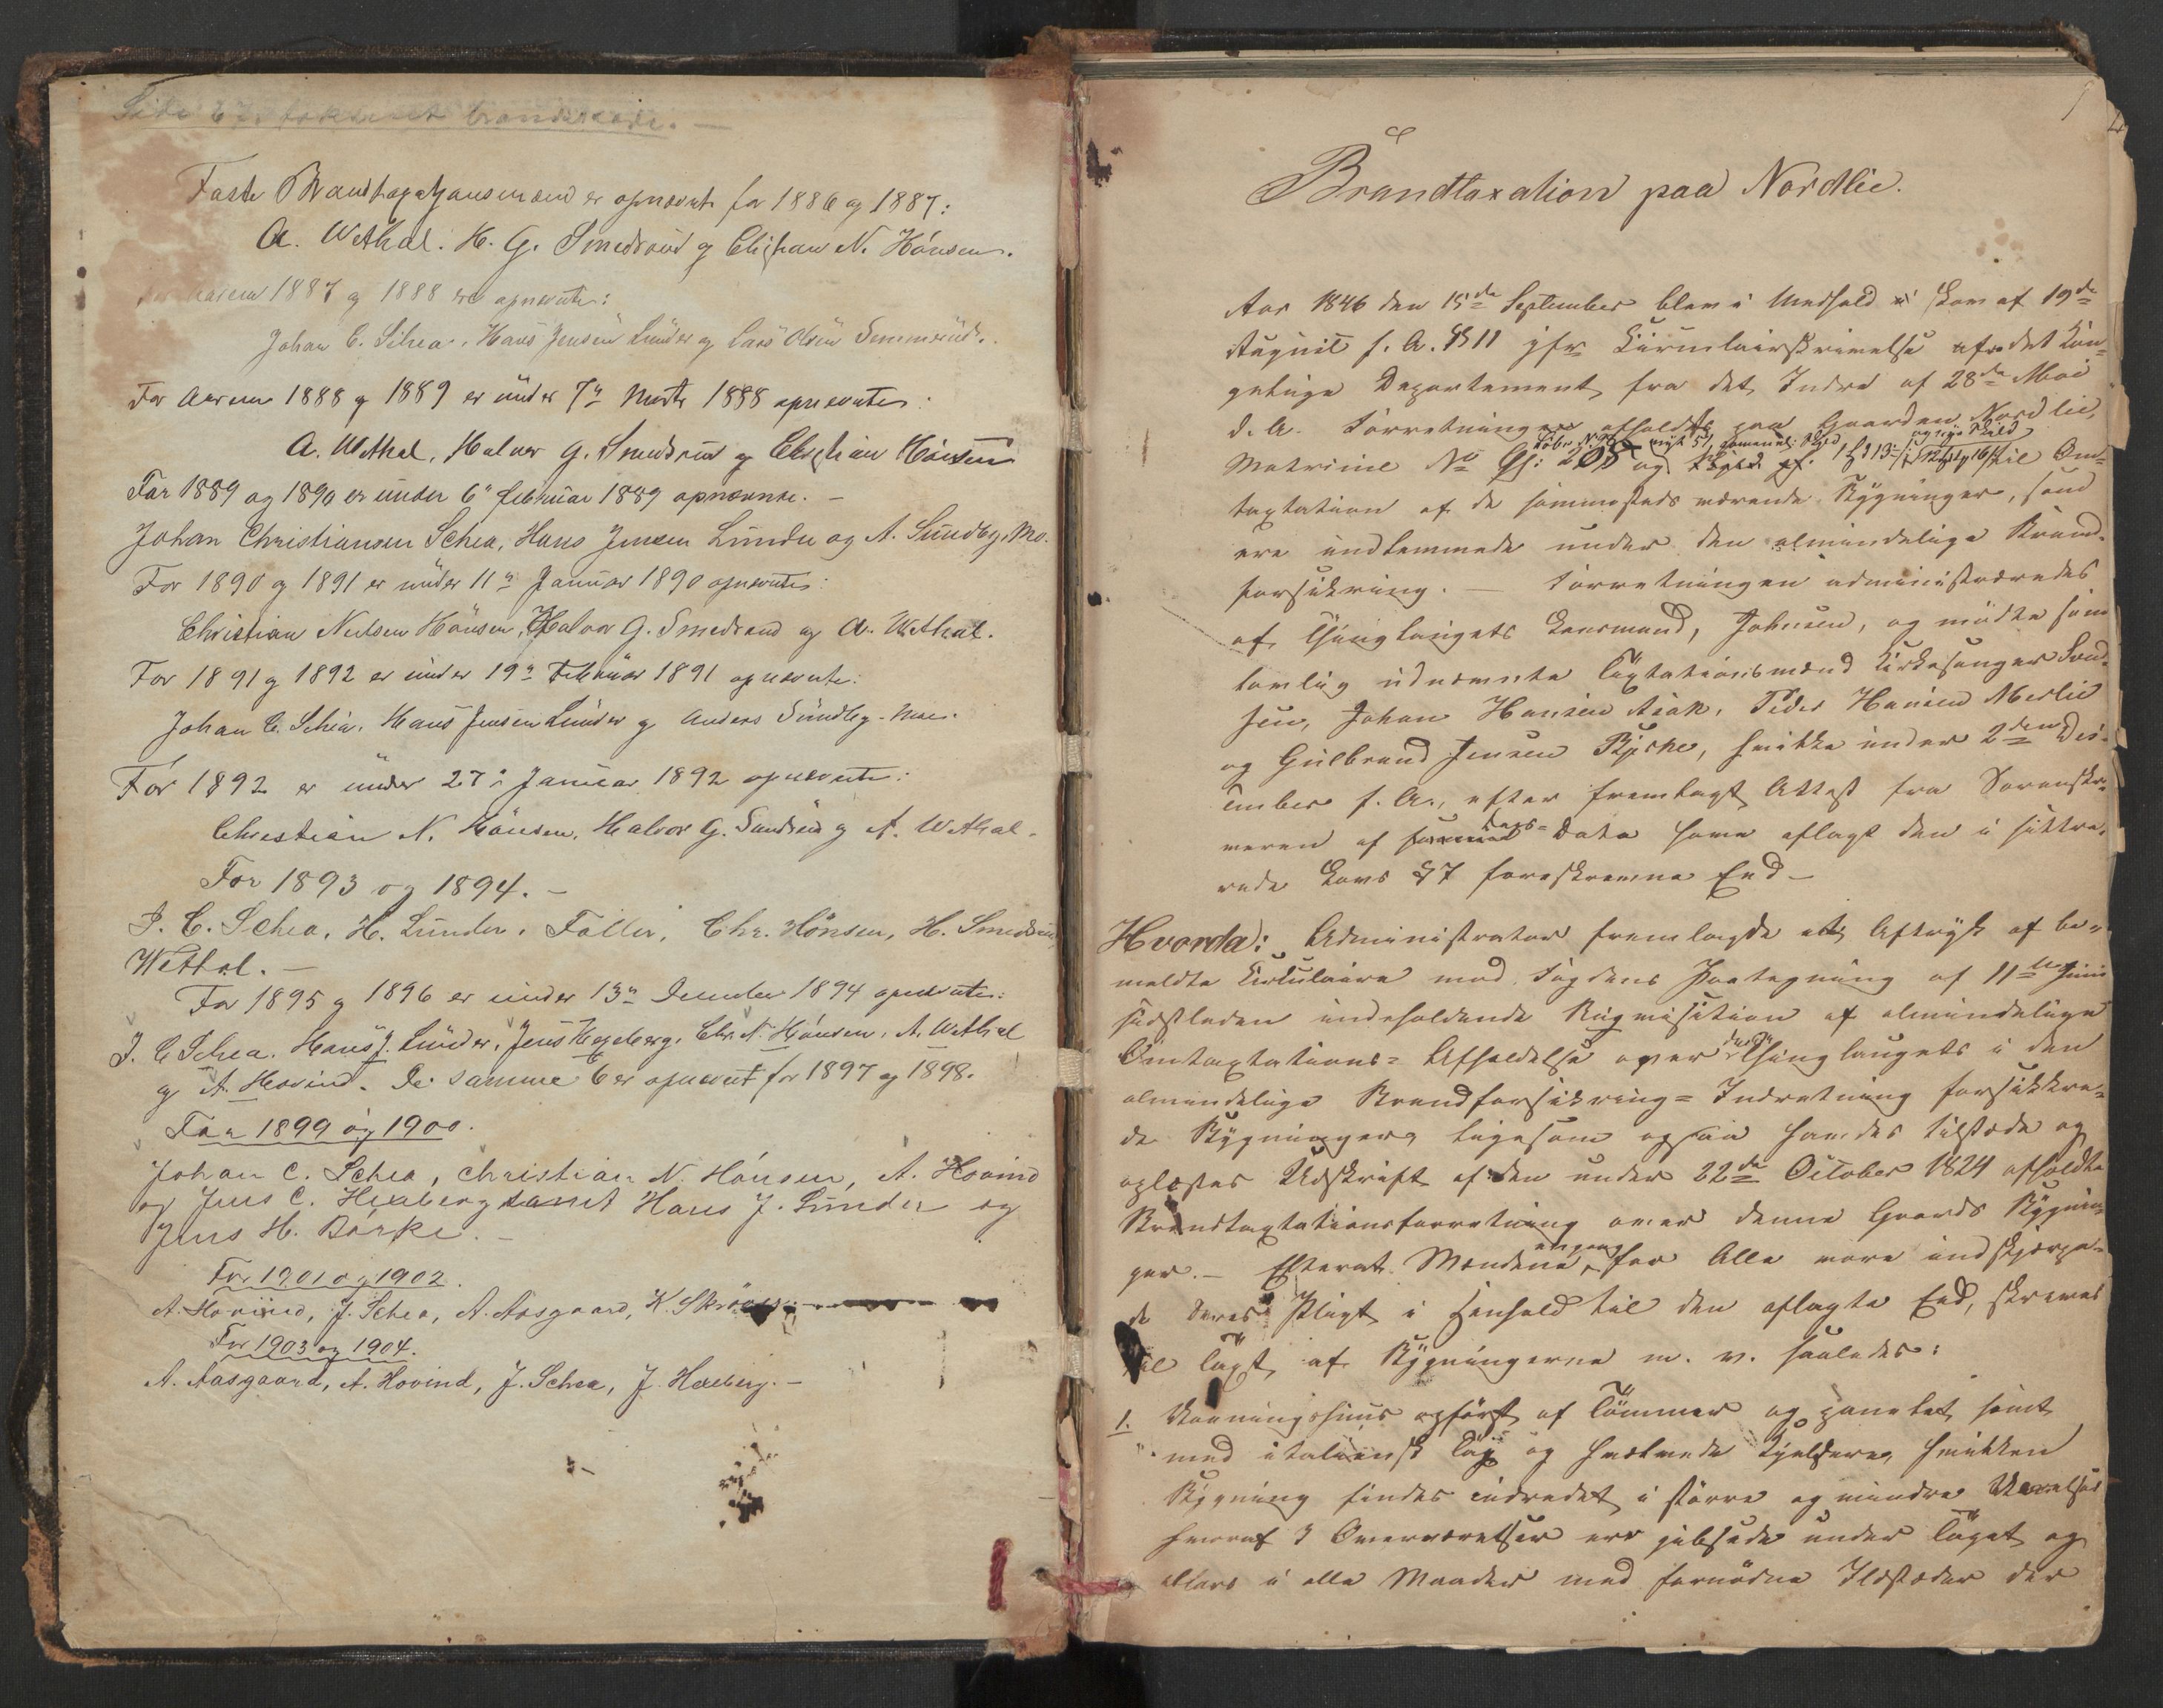 Faste Brandtaxationsmænd er opnævnt for 1886 og 1887:
A. Wethal. H. G. Smedsrud og Christian N. Hönsen.
1887 og 1888 ere opnævnte:
Johan C. Schea, Hans Jensen Lunder og Lars Olsen
For Aarene 1888 og 1889 er under 7de Marts 1888 opnævnte:
A. Wethal, Halvor G. Smedsrud og Christian Hönsen
For 1889 og 1890 er under 6te Februar 1889 opnævnte. –
Johan Christiansen Schea, Hans Jensen Lunder og A. Sundby, Mo.
For 1890 og 1891 er under 11te Januar 1890 opnævnte:
Christian Neelsen Hönsen, Halvor G. Smedsrud og A. Wethal.
For 1891 og 1892 er under 19de Februar 1891 opnævnte:
Johan C. Schea, Hans Jensen Lunder og Anders Sundby-Moe.
For 1892 er under 27de Januar 1892 opnævnte:
Christian N. Hönsen, Halvor G. Smedsrud og A. Wethal.
For 1893 og 1894. –
J. C. Schea, H. Lunder, Chr. Hönsen, H. Smedsrud
Wethal. –
For 1895 og 1896 er under 13de December 1894 opnævnte:
J. C. Schea. Hans J. Lunder, Jens Hexeberg, Chr. N. Hönsen, A. Wethal
og A. Hovind. De samme 6 er opnævnt for 1897 og 1898.
For 1899 og 1900.
Johan C. Schea, Christian N. Hönsen, A. Hovind
og Jens C. Hexeberg samt Hans J. Lunder og
Jens H. Börke. –
For 1901 og 1902.
A. Hovind, J. Schea, A. Aasgaard, K.
For 1903 og 1904.
A. Aasgaard, A. Hovind, J. Schea, J. Hexeberg. –
1
Brandtaxation paa Nordlie.
Aar 1846 den 15de September blev i Medhold af Lov af 19de
August s. A. § 11 jfr Circulairskrivelse fra det Kon-
gelige Departement fra det Indre af 28de Mai
d. A. Forretningen afholdt paa Gaarden Nordlie,
Matricul No
taxtation af de sammesteds værende Bygninger, som
ere indlemmede under den almindelige Brand-
forsikring. – Forretningen administreredes
af Thinglaugets Lensmand, Johnsen, og mødte som
lovlig udnævnte Taxtationsmænd Kirkesanger
sen, Johan Hansen Ask, Peder Hansen Merlie
og Gulbrand Jensen Bjerke, hvilke under 2den Des-
ember f. A., efter fremlagt Attest fra Sorenskri-
veren af Dags- Dato have aflagt den i citere-
rede Lovs § 7 foreskrevne Eed –
Hvorda: Administrator fremlagde et Aftryk af be-
meldte Circulaire med Fogdens Paategning af 11te Juni
sidstleden indeholdende Reqvisition af almindelige
Omtaxtations-Afholdelse over Thinglaugets i den
almindelige Brandforsikring-Indretning forsikkre-
de Bygninger, ligesom ogsaa havdes tilstede og
oplæstes Udskrift af den under 22de October 1824 afholdte
Brandtaxtationsforretning over denne Gaards Bygnin-
ger. – Efterat Mændene, engang for Alle vare indskjærpe-
de deres Pligt i Henhold til den aflagte Eed, skreves
til Taxt af Bygningerne m. v. saaledes:
1. Vaaningshuus opført af Tömmer og panelet samt
med italiensk Tag og hvælvede Kjeldere, hvilken
Bygning findes indredet i større og mindre Værelser
hvoraf 3 Overværelser ere gibsede under Taget og
ellers i alle Maader med fornødne Ildsteder der